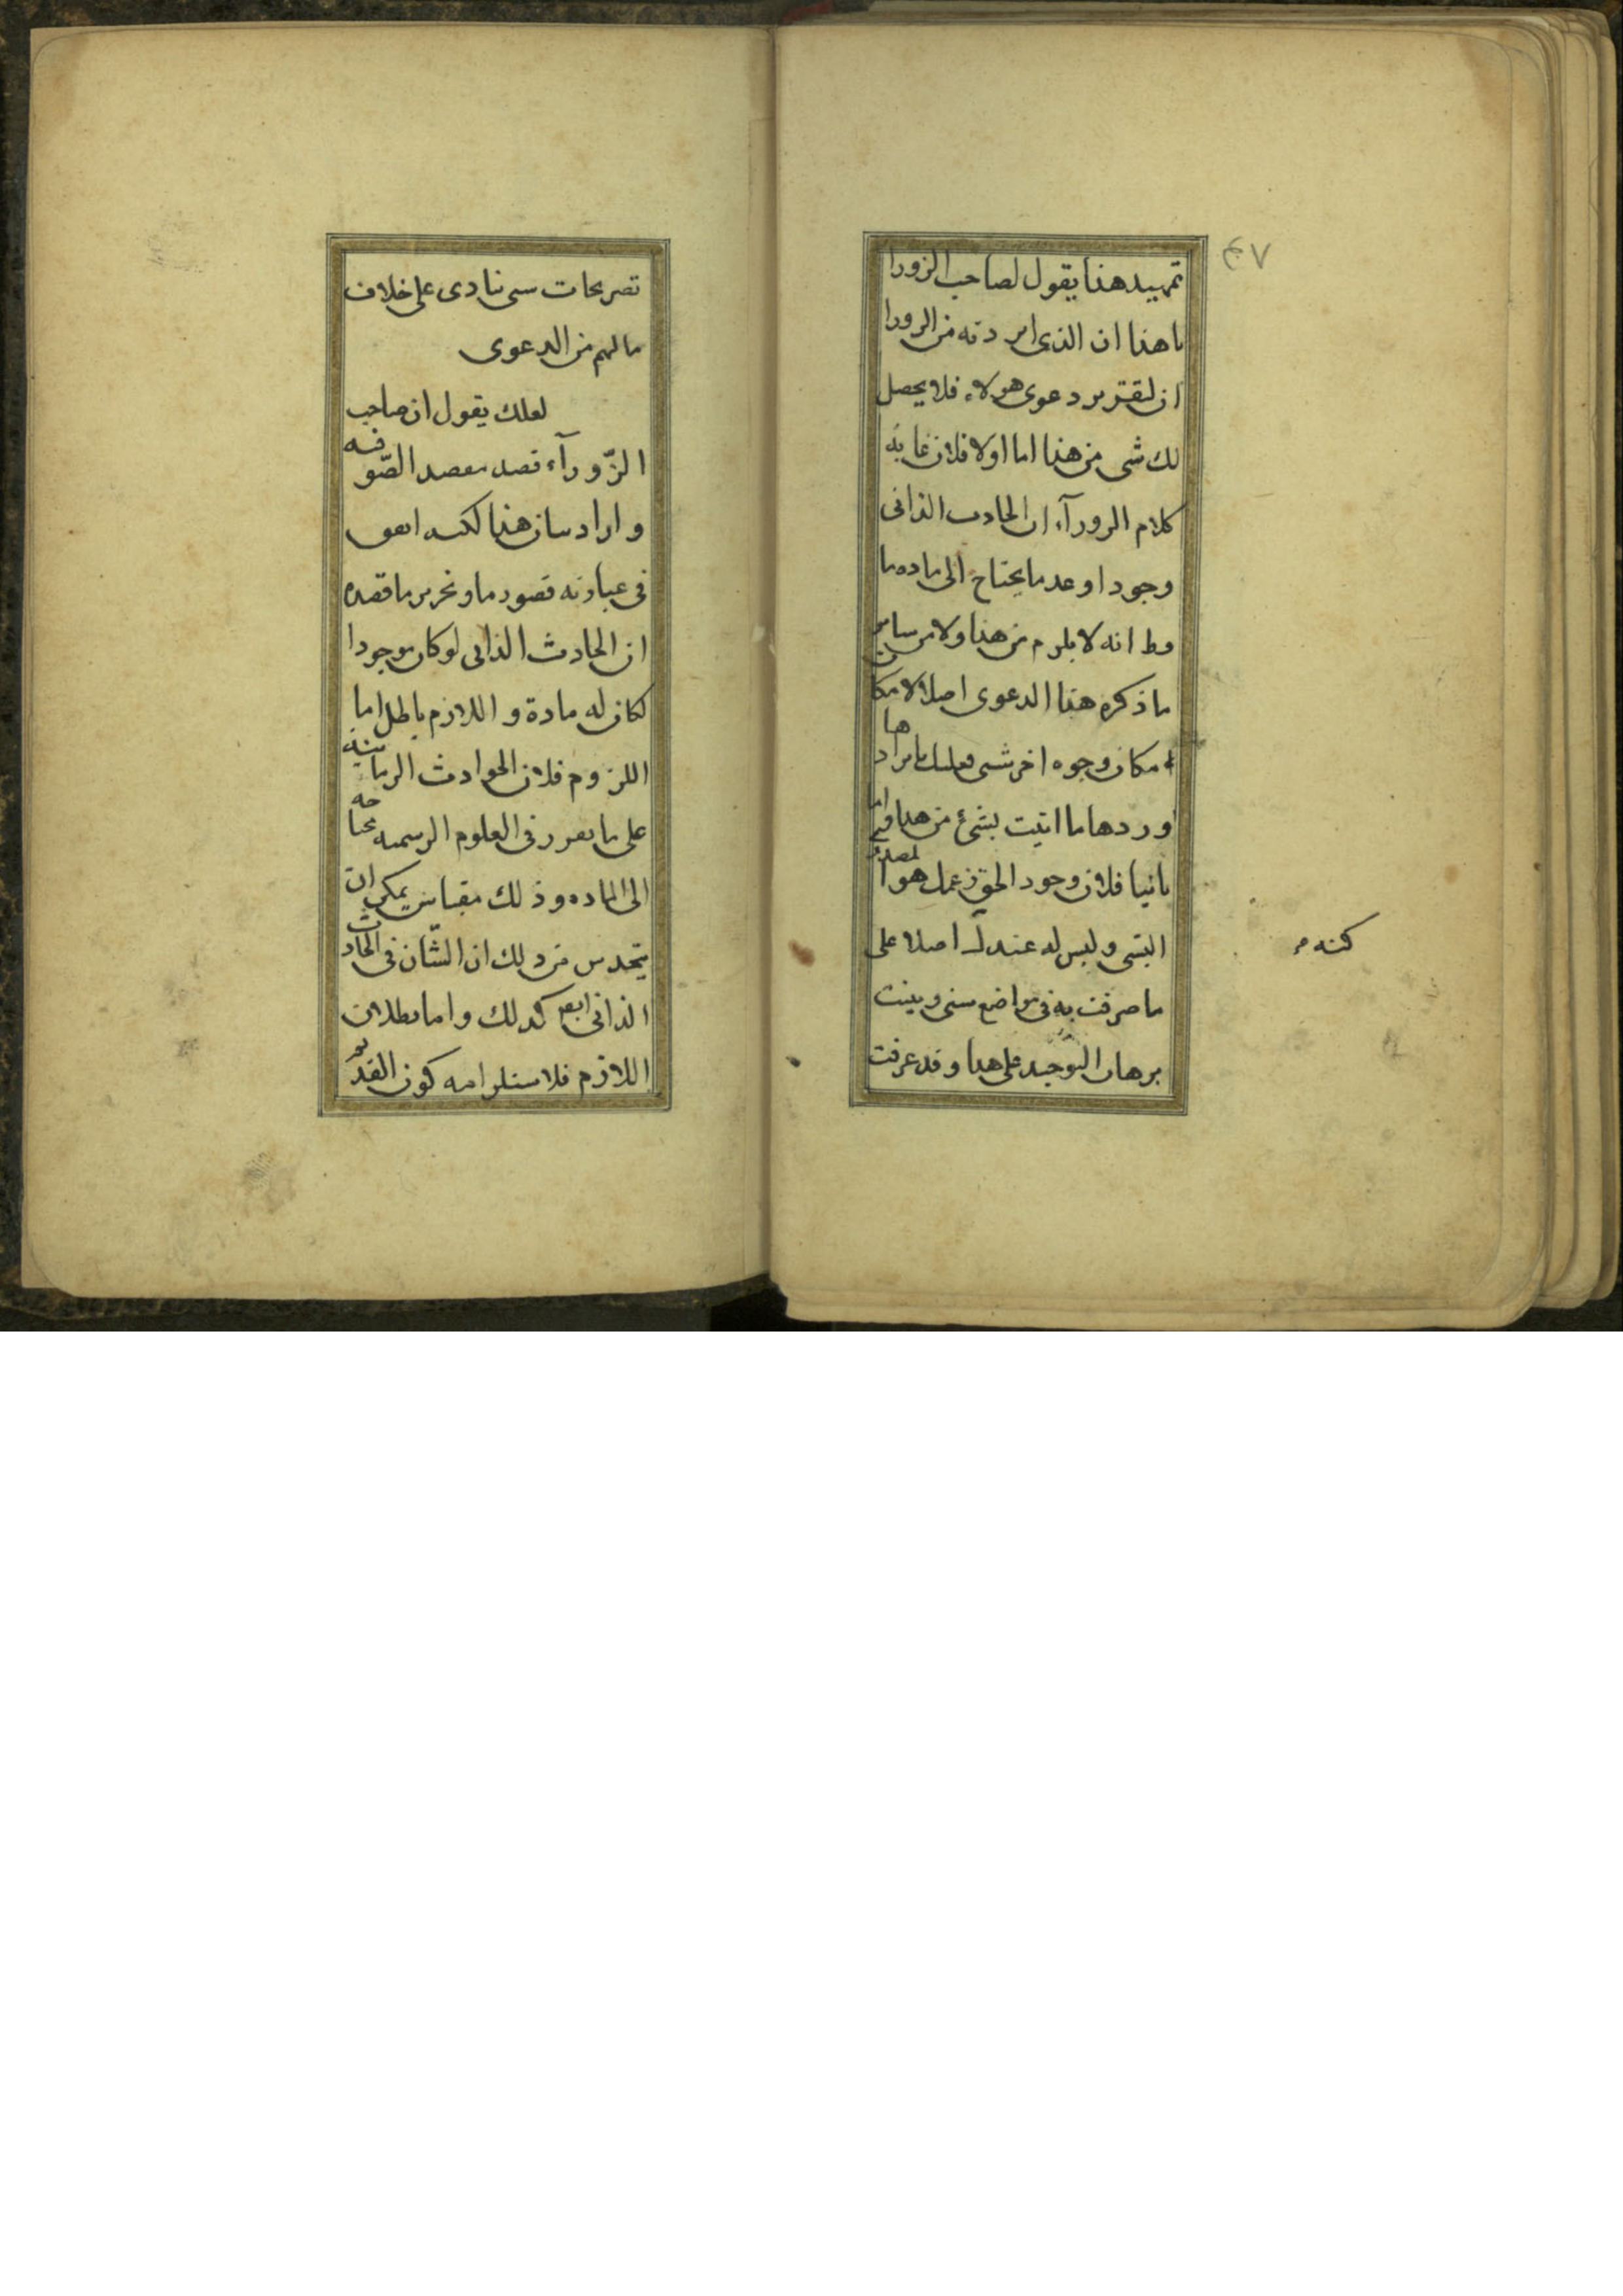 ٤٧
تمهيد هذا يقول لصاحب الزورا
ما هذا ان الذى اردته من الزورا
ان لتقرير دعوى هولاء فلا يحصل
لك شى من هذا اما اولا فلان غاية
كلام الزورآء ان الحادث الذاتى
وجودا وعدما يحتاج الى مادة ما
وط انه لا يلزم من هذا ولا من ساير
ما ذكره هذا الدعوى اصلا لامكا
مكان وجوه اخر شتى فعليك بايرادها
وردها ما اتيت بشئ من هذا واما
ثانيا فلان وجود الحق زعمك هو المصدر
البتى وليس له عندك اصلا على
كنه
ما صرفت به فى مواضع شتى وبينت
برهان التوحيد على هذا وقد عرفت
تصريحات شتى نادى على خلاف
مالهم من الدعوى
لعلك يقول ان صاحب
الزّورآء قصد مقصد الصّوفيه
واراد بيان هذا لكنه اتفق
فى عبارته قصور ما وتحرير ما قصده
ان الحادث الذاتى لو كان موجودا
لكان له مادة و اللازم باطل اما
اللزوم فلان الحوادث الزمانية
على ما تقرر فى العلوم الرسميه محتاجه
الى الماده وذلك مقياس يمكن ان
يتحدس من ذلك ان الشّان فى الحادث
الذاتى ايضا كذلك واما بطلان
اللازم فلاستلزامه كون القديم